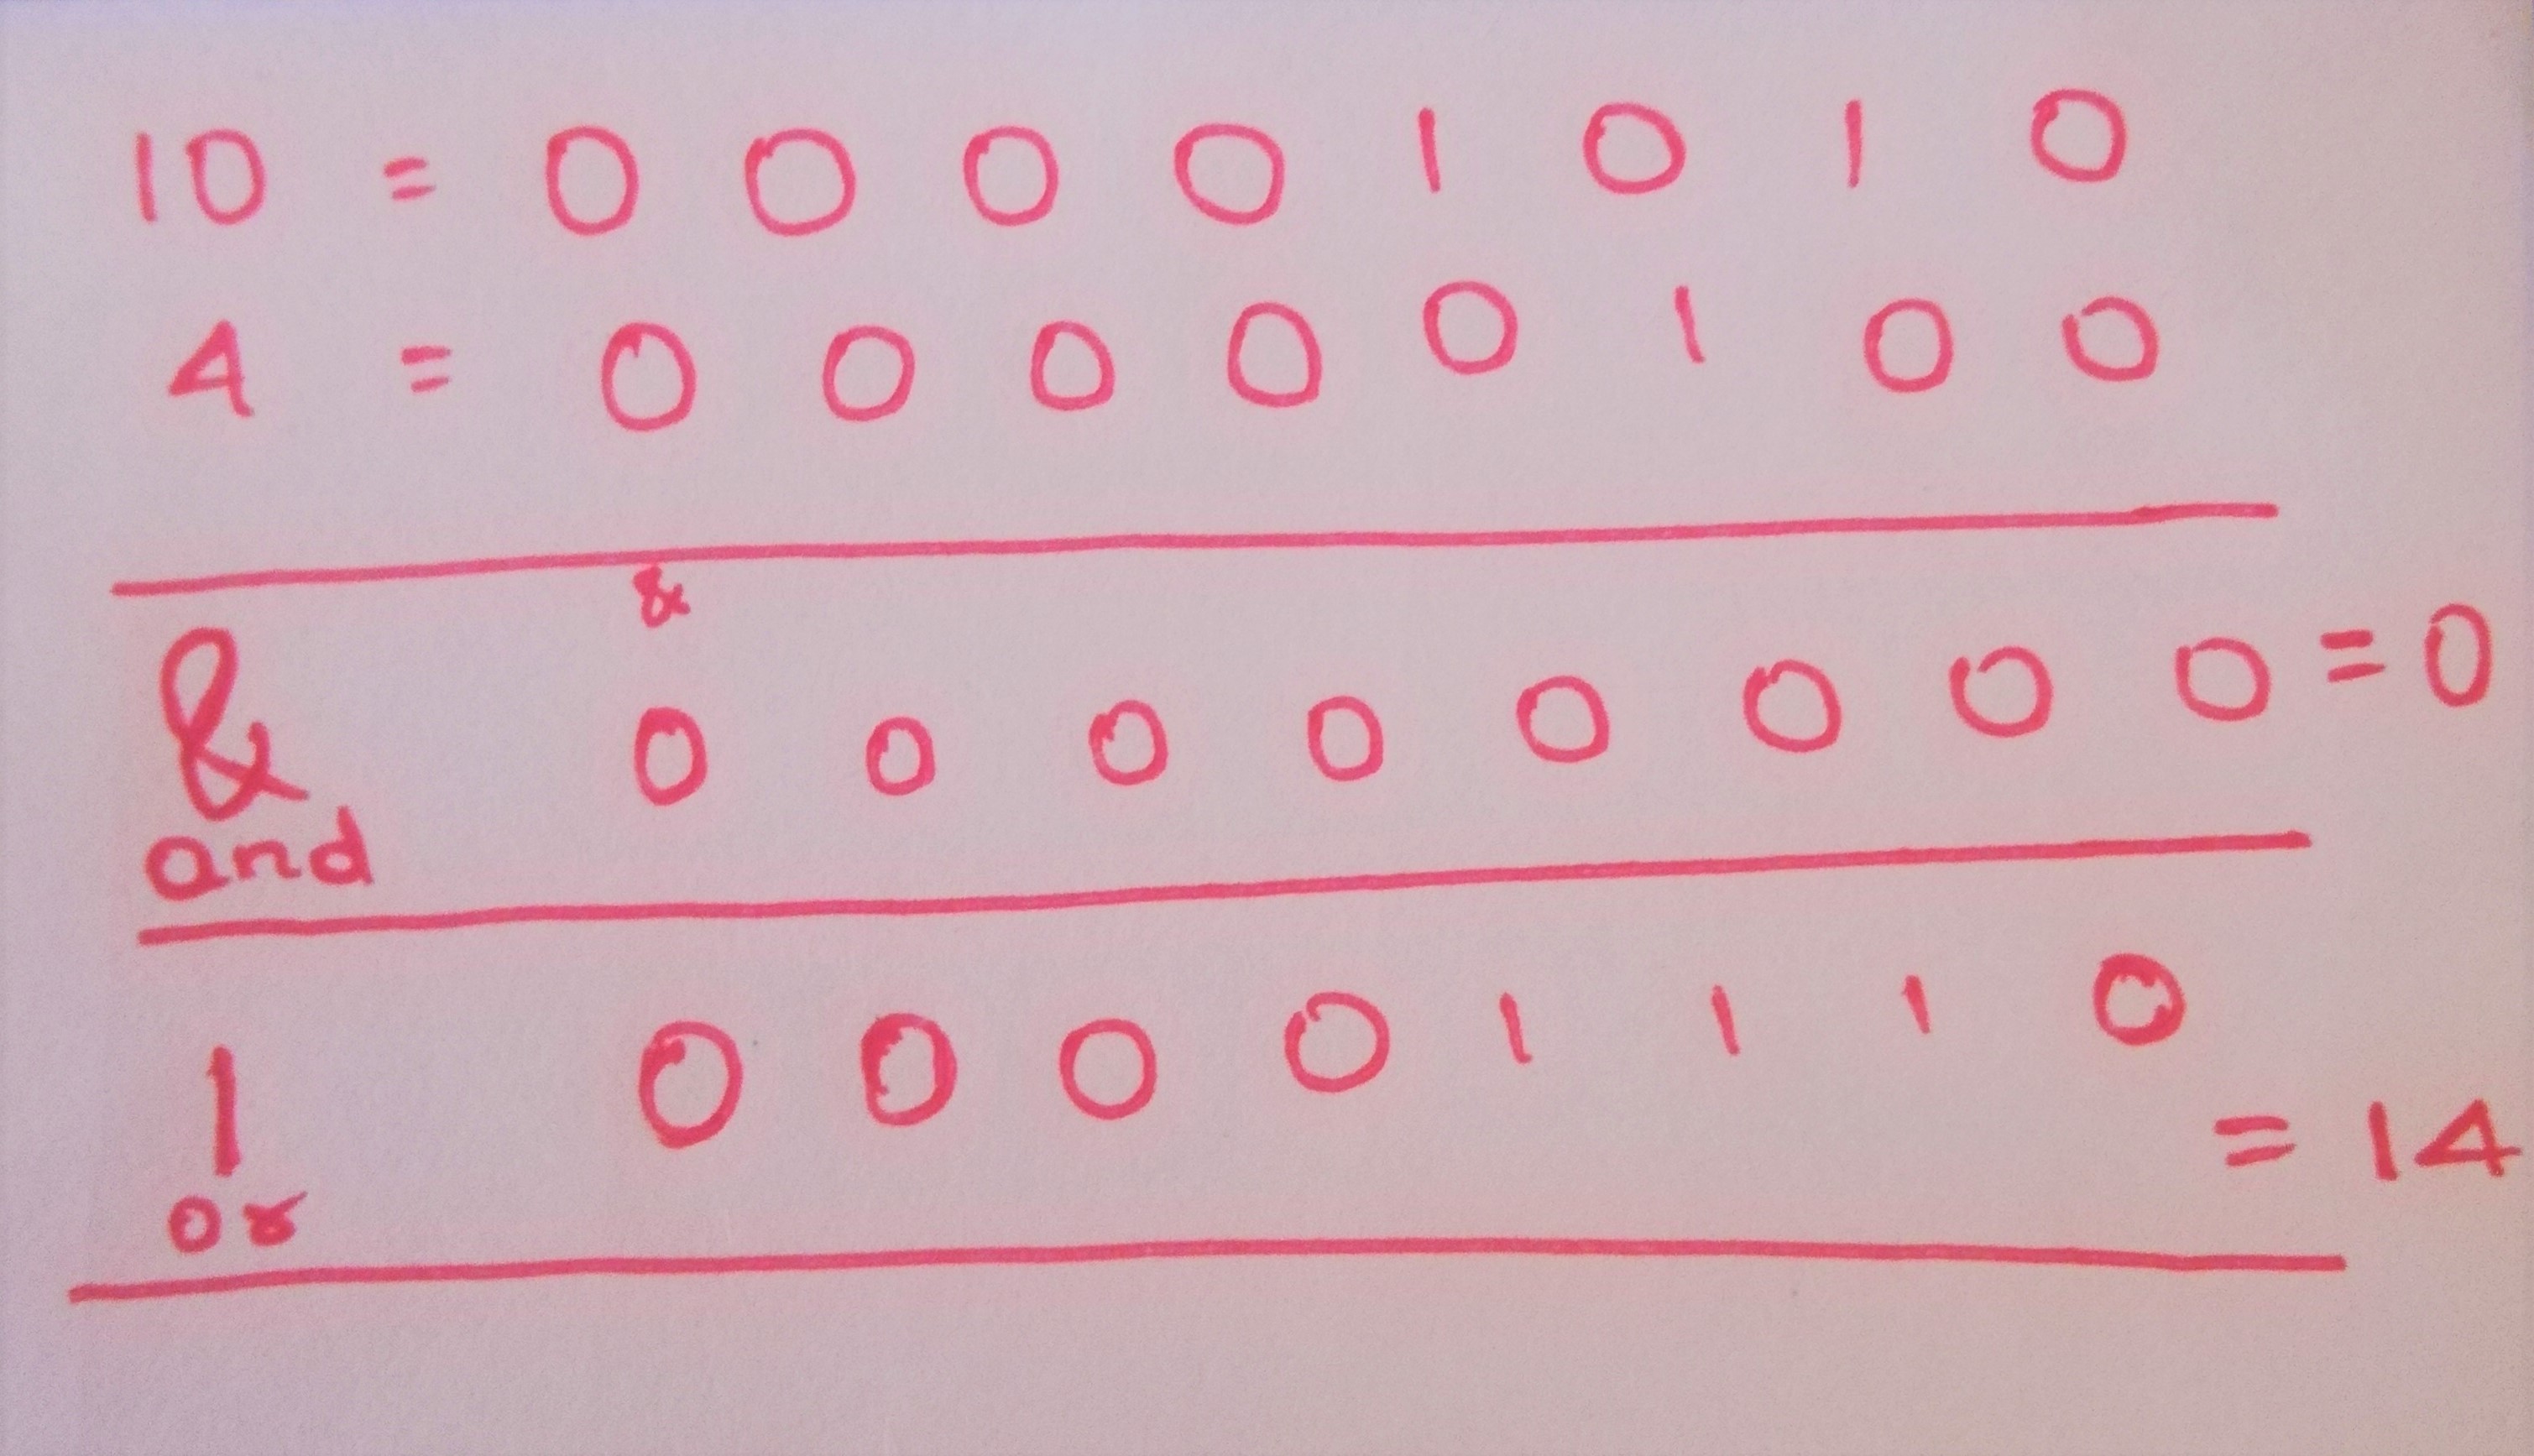 10 = 0 0 0 0 1 0 1 0
4 = 0 0 0 0 0 1 0 0
&
& 0 0 0 0 0 0 0 0 = 0
and
| 0 0 0 0 1 1 1 0
= 14
or